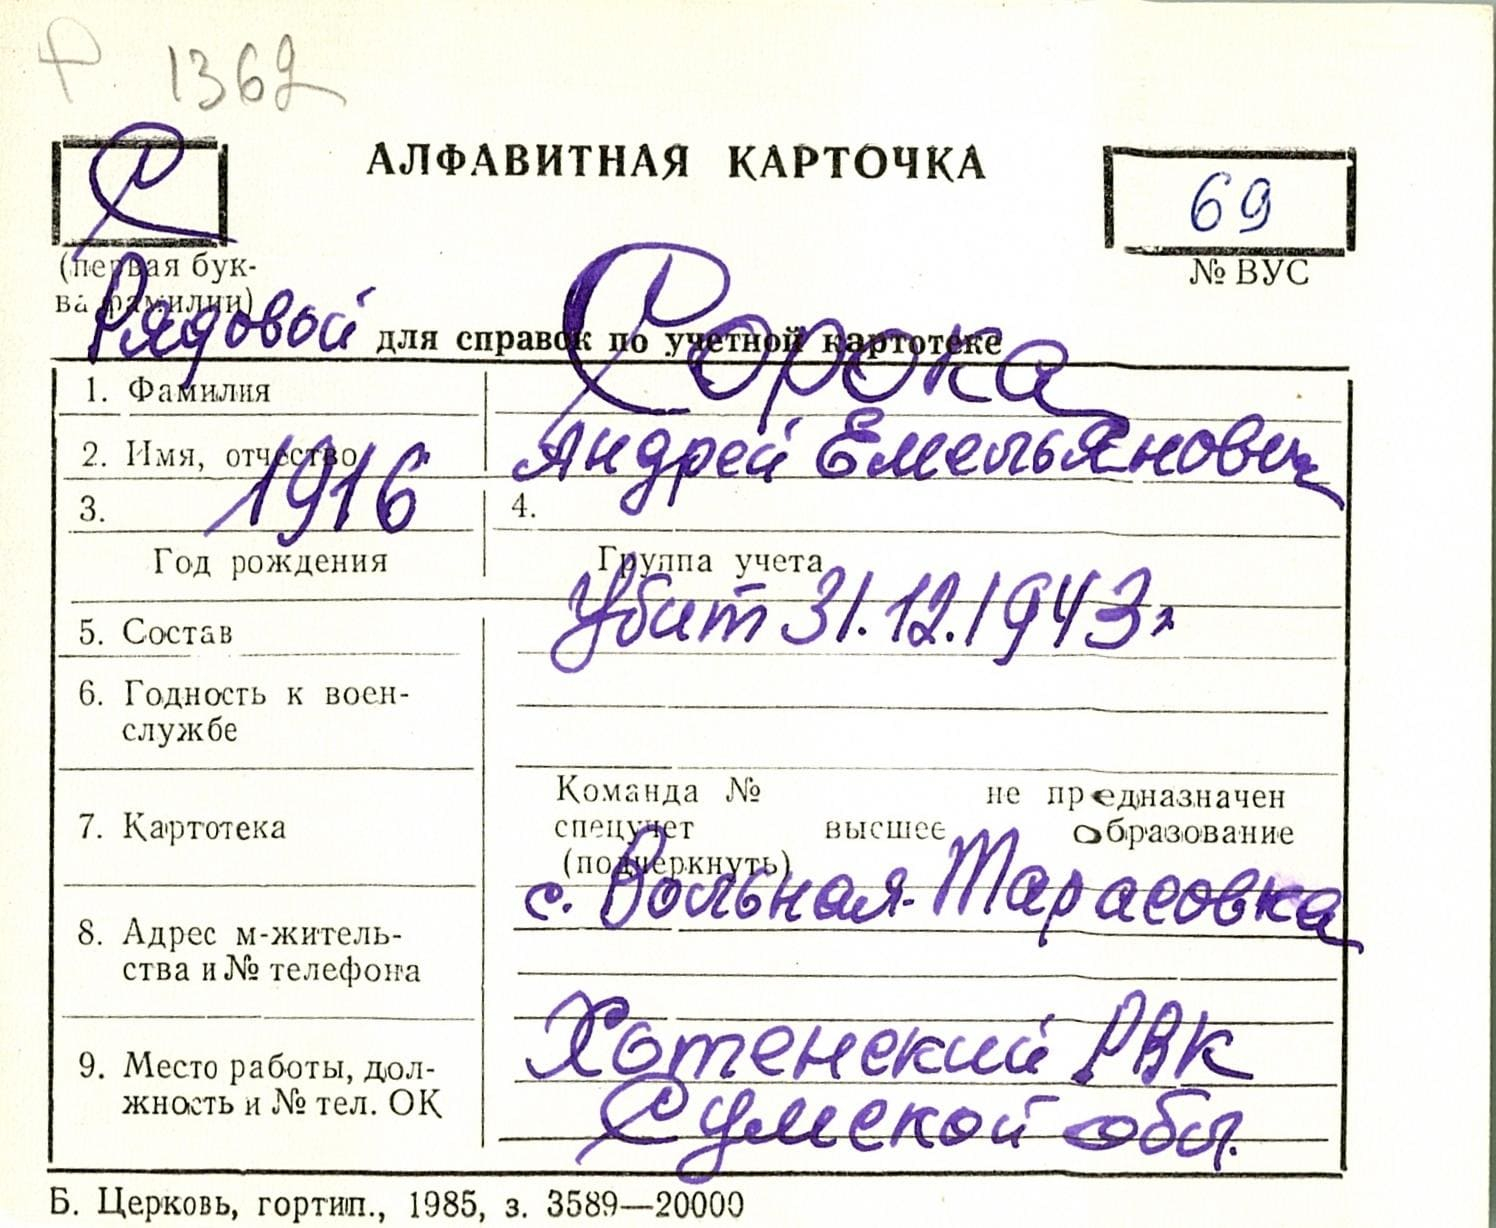 Р. 1362
С
АЛФАВИТНАЯ КАРТОЧКА
69
(первая бук-
ва фамилии)
№ ВУС
Рядовой
для справок по учетной картотеке
1. Фамилия
Сорока
2. Имя, отчество
Андрей Емельянович
3. 1916
4.
Год рождения
Группа учета
Убит 31.12.1943г
5. Состав
6. Годность к воен-
службе
7. Картотека
Команда № не предназначен
спецучет высшее образование
(подчеркнуть)
с. Вольная-Тарасовка
8. Адрес м-житель-
ства и № телефона
Хотенский РВК
9. Место работы, дол-
жность и № тел. ОК
Сумской обл.
Б. Церковь, гортип., 1985, з. 3589—20000